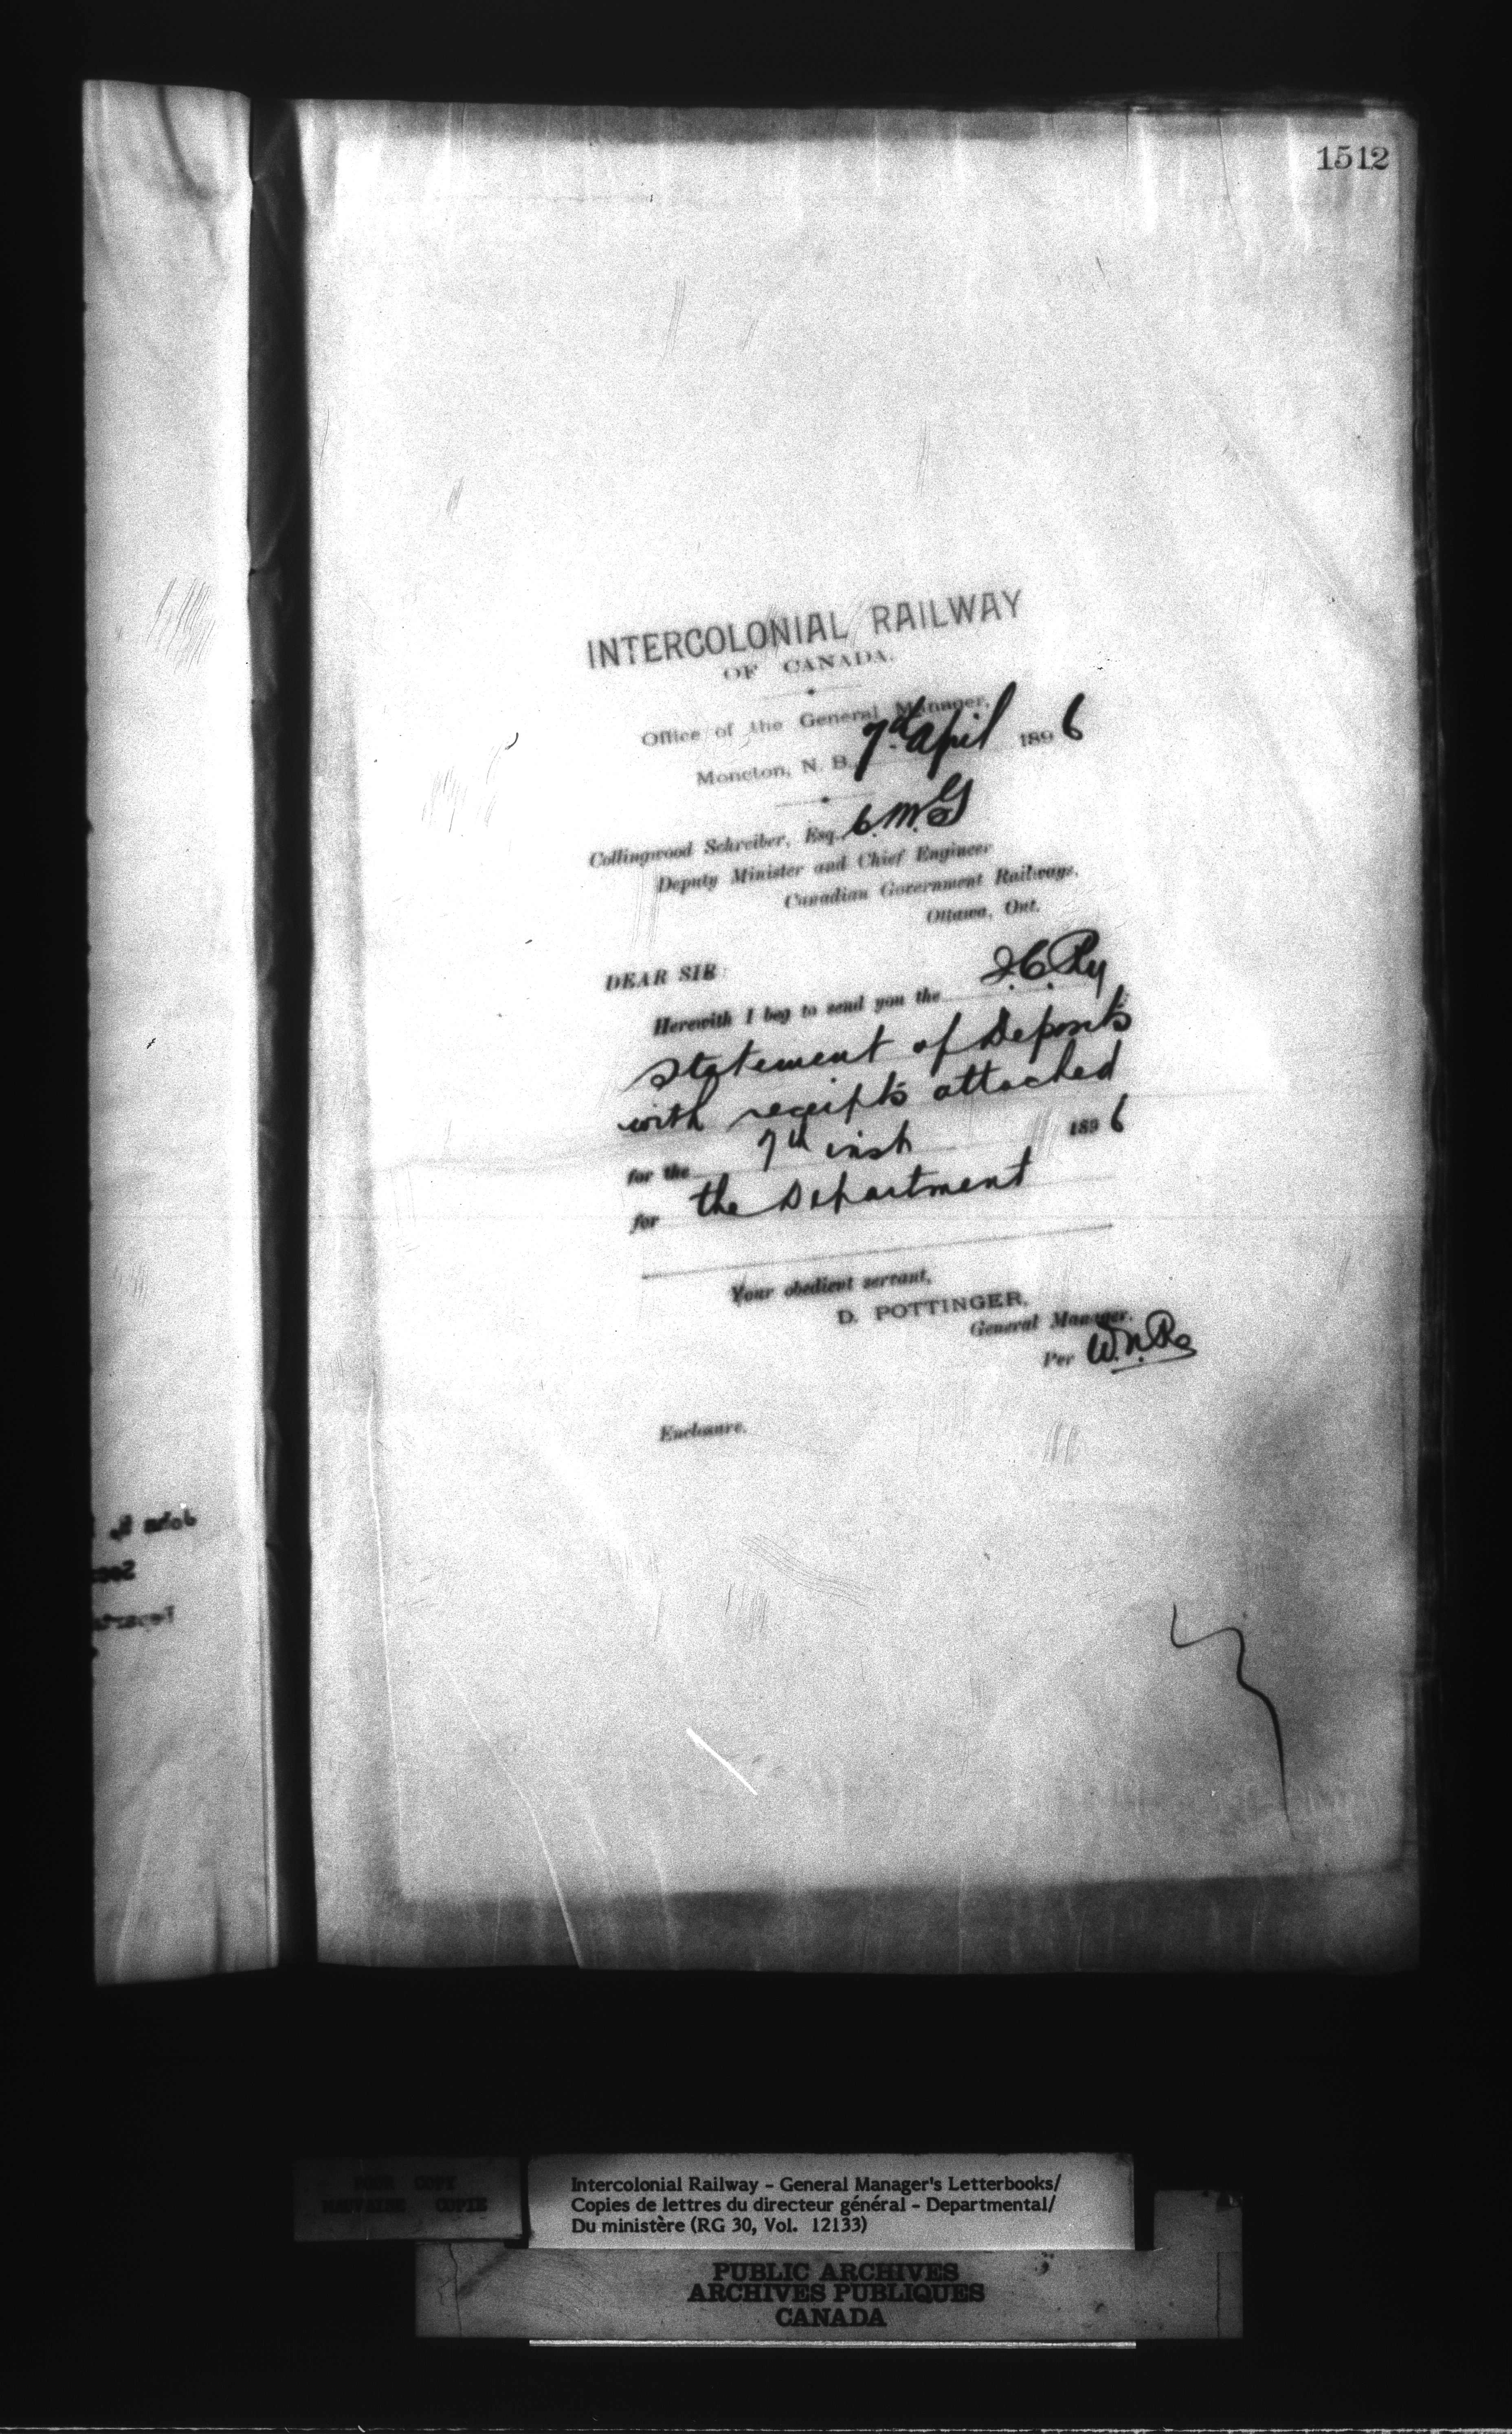 1512
INTERCOLONIAL RAILWAY
OF CANADA.
Office of the General Manager,
Moncton, N. B., 7th April 1896
Collingwood Schreiber, Esq. C.M.G
Deputy Minister and Chief Engineer
Canadian Government Railways,
Ottawa, Ont.
DEAR SIR:
Herewith I beg to send you the I.C.Ry
statement of Deposits
with receipts attached
for the 7th inst 1896
for the Department
Your obedient servant,
D. POTTINGER,
General Manager.
Per
Enclosure.
John
POOR COPY
MAUVAISE COPIE
Intercolonial Railway - General Manager's Letterbooks/
Copies de lettres du directeur général - Departmental/
Du ministère (RG 30, Vol. 12133)
PUBLIC ARCHIVES
ARCHIVES PUBLIQUES
CANADA